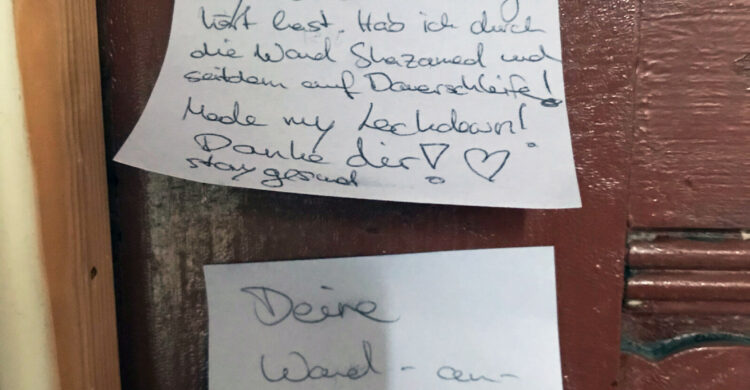 hört hast. Hab ich durch
die Wand Shazamed und
seitdem auf Dauerschleife!
Made my Lockdown!
Danke dir! ♡
stay gesund
Deine
Wand-an-